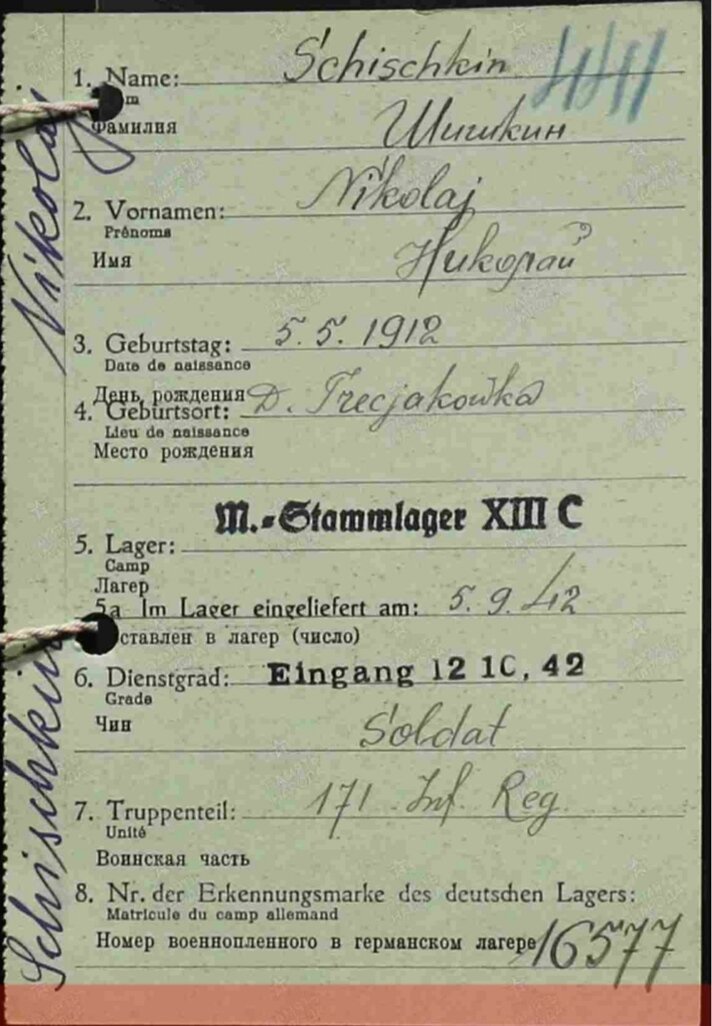 441
1. Name: Schischkin
Nom
Фамилия Шишкин
2. Vornamen: Nikolaj
Prénoms
Имя Николай
3. Geburtstag: 5.5.1912
Date de naissance
День рождения
4. Geburtsort: D. Trecjakowka
Lieu de naissance
Место рождения
M.-Stammlager XIII C
5. Lager:
Camp
Лагерь
5a Im Lager eingeliefert am: 5.9.42
ставлен в лагер (число)
6. Dienstgrad: Eingang 12 10, 42
Grade
Чин Soldat
7. Truppenteil: 171 Inf. Reg.
Unité
Воинская часть
8. Nr. der Erkennungsmarke des deutschen Lagers:
Matricule du camp allemand
Номер военнопленного в германском лагере 16577
Schischkin Nikolaj